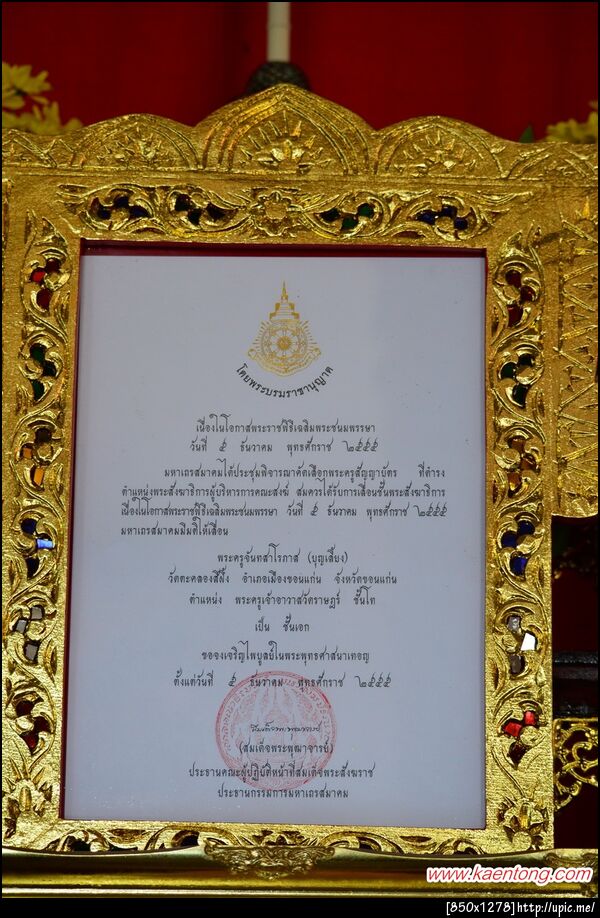 โดยพระบรมราชานุญาต
เนื่องในโอกาสพระราชพิธีเฉลิมพระชนมพรรษา
วันที่ ๕ ธันวาคม พุทธศักราช ๒๕๕๕
มหาเถรสมาคมได้ประชุมพิจารณาคัดเลือกพระครูสัญญาบัตร ที่ดำรง
ตำแหน่งพระสังฆาธิการผู้บริหารการคณะสงฆ์ สมควรได้รับการเลื่อนชั้นพระสังฆาธิการ
เนื่องในโอกาสพระราชพิธีเฉลิมพระชนมพรรษา วันที่ ๕ ธันวาคม พุทธศักราช ๒๕๕๕
มหาเถรสมาคมมีมติให้เลื่อน
พระครูจันทสาโรภาส (บุญเสี้ยง)
วัดตะคลองสีผึ้ง อำเภอเมืองขอนแก่น จังหวัดขอนแก่น
ตำแหน่ง พระครูเจ้าอาวาสวัดราษฎร์ ชั้นโท
เป็น ชั้นเอก
ขอจงเจริญไพบูลย์ในพระพุทธศาสนาเทอญ
ตั้งแต่วันที่ ๕ ธันวาคม พุทธศักราช ๒๕๕๕
(สมเด็จพระพุฒาจารย์)
ประธานคณะผู้ปฏิบัติหน้าที่สมเด็จพระสังฆราช
ประธานกรรมการมหาเถรสมาคม
www.kaentong.com
[850x1278]http://upic.me/